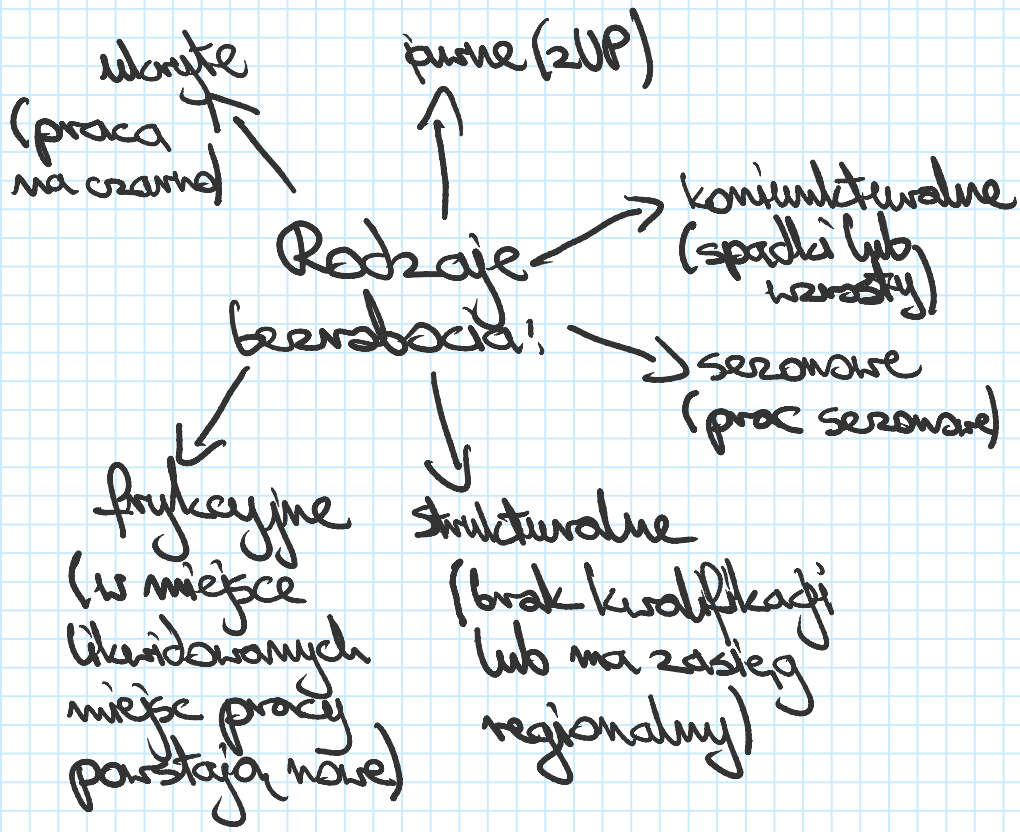 ukryte
(praca
na czarno)
jawne (z UP)
Rodzaje
bezrobocia:
koniunkturalne
(spadki lub
wzrosty)
sezonowe
(prac sezonowe)
frykcyjne
(w miejsce
likwidowanych
miejsc pracy
powstają nowe)
strukturalne
(brak kwalifikacji
lub ma zasięg
regionalny)